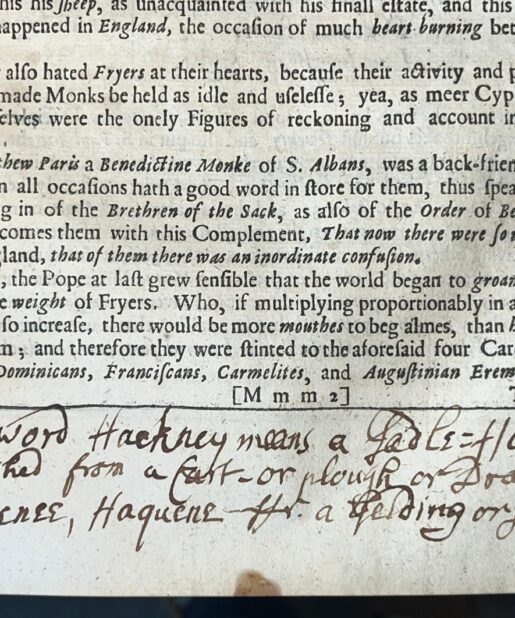 his his ſheep, as unacquainted with his finall eſtate, and this
happened in England, the occaſion of much heart-burning bet
alſo hated Fryers at their hearts, becauſe their activity and p
made Monks be held as idle and uſeleſſe; yea, as meer Cyp
ſelves were the onely Figures of reckoning and account in
thew Paris a Benedictine Monke of S. Albans, was a back-frien
n all occaſions hath a good word in ſtore for them, thus ſpea
g in of the Brethren of the Sack, as alſo of the Order of Be
comes them with this Complement, That now there were ſo
gland, that of them there was an inordinate confuſion.
, the Pope at laſt grew ſenſible that the world began to groan
e weight of Fryers. Who, if multiplying proportionably in a
ſo increaſe, there would be more mouthes to beg almes, than h
m; and therefore they were ſtinted to the aforeſaid four Car
Dominicans, Franciſcans, Carmelites, and Auguſtinian Erem
[M m m 2]
word Hackney means a Sadle=
hed from a Cart-or plough or
enee, Haquene Fr. a Gelding or